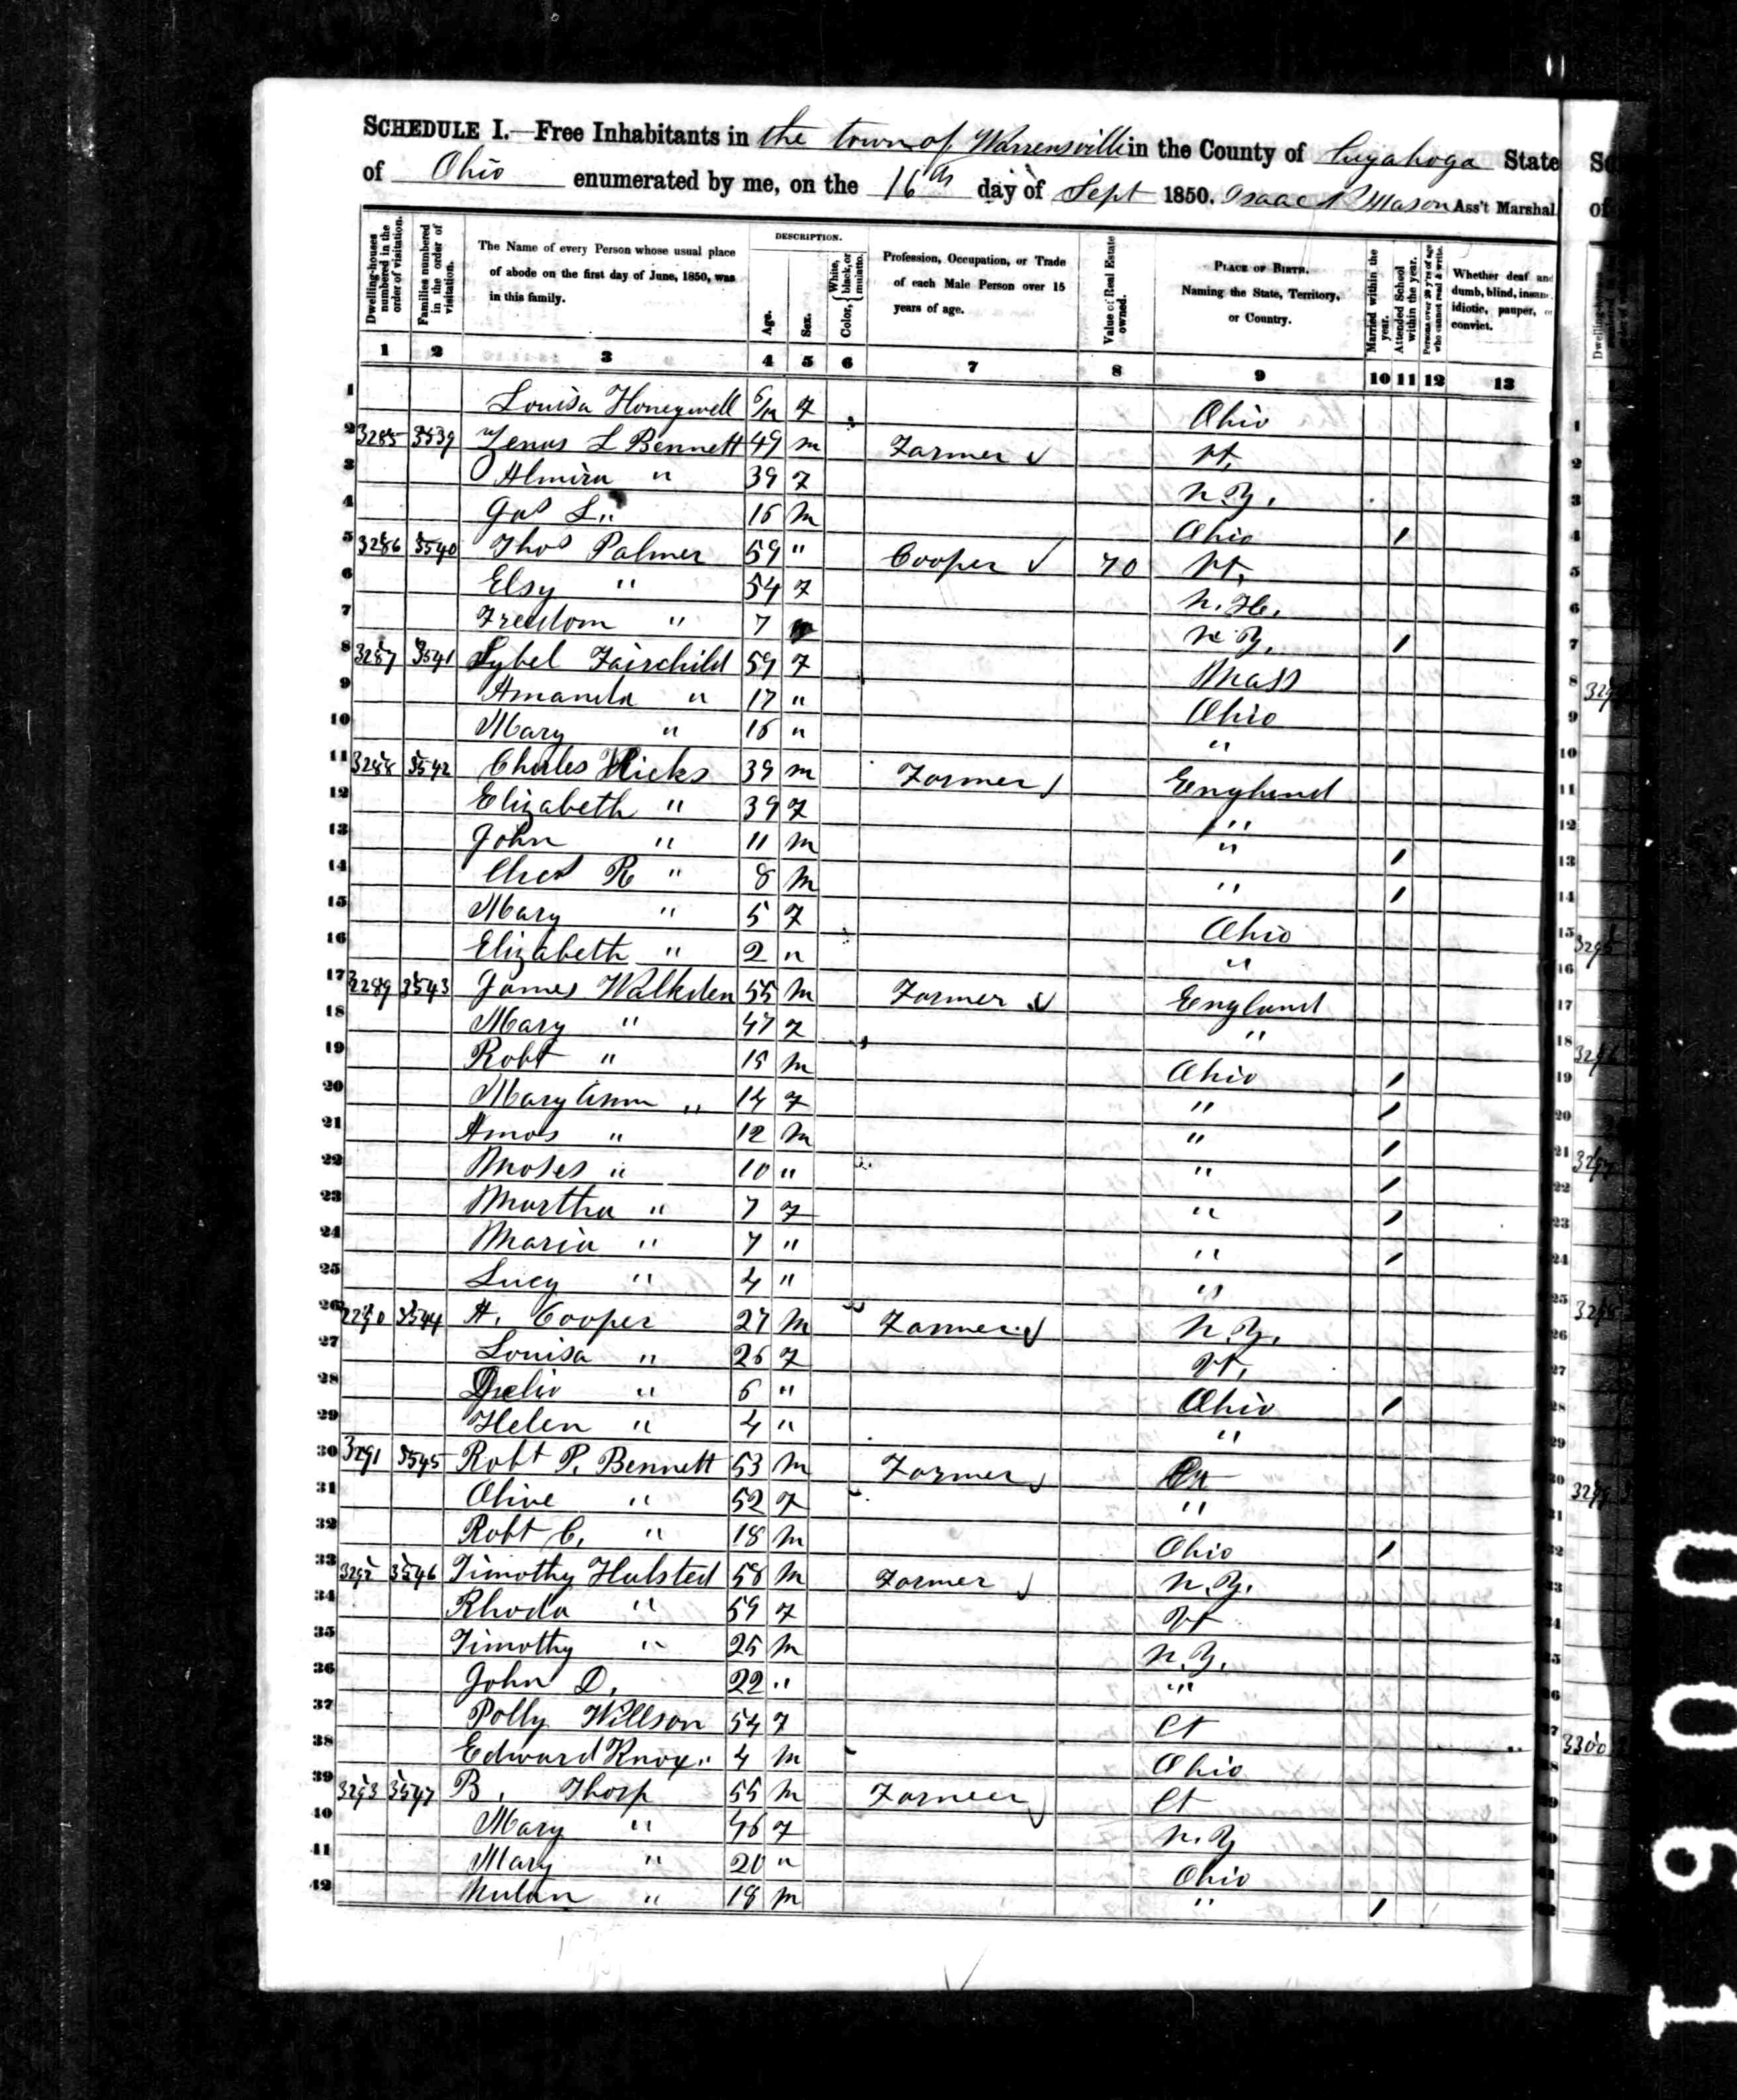 SCHEDULE I.—Free Inhabitants in the town of Warrensville in the County of Cuyahoga State
of Ohio enumerated by me, on the 16th day of Sept 1850. Isaac Mason Ass't Marshal
Dwelling-houses numbered in the order of visitation.
Families numbered in the order of visitation.
The Name of every Person whose usual place of abode on the first day of June, 1850, was in this family.
DESCRIPTION.
Age.
Sex.
Color, White, black, or mulatto.
Profession, Occupation, or Trade of each Male Person over 15 years of age.
Value of Real Estate owned.
PLACE OF BIRTH. Naming the State, Territory, or Country.
Married within the year.
Attended School within the year.
Persons over 20 y'rs of age who cannot read & write.
Whether deaf and dumb, blind, insane, idiotic, pauper, or convict.
1 2 3 4 5 6 7 8 9 10 11 12 13
1 Louisa Honeywell 6/12 F Ohio
2 3285 3539 Zenas L Bennett 49 m Farmer Vt.
3 Almira " 39 F N.Y.
4 L " m Ohio 1
5 3286 3540 Thos Palmer 59 " Cooper 70 Vt.
6 Elsy " 54 F N.H.
7 Freedom " 7 N.Y. 1
8 3287 3541 Sybel Fairchild 59 F Mass
9 Amanda " 17 " Ohio
10 Mary " "  "
11 3288 3542 Charles Hicks 39 m Farmer England
12 Elizabeth " 39 F "
13 John " 11 m " 1
14 Chas R " 8 m " 1
15 Mary " 5 F Ohio
16 Elizabeth " 2 " "
17 3289 3543 James Walkden 55 m Farmer England
18 Mary " 47 F "
19 Robt " 15 m Ohio 1
20 Mary Ann " 14 F " 1
21 Amos " 12 m " 1
22 Moses " 10 " " 1
23 Martha " 7 F " 1
24 Maria " 7 " " 1
25 Lucy " 4 " "
26 3290 3544 A. Cooper 27 m Farmer N.Y.
27 Louisa " 26 F Vt.
28 " 6 " Ohio 1
29 Helen " 4 " "
30 3291 3545 Robt P. Bennett 53 m Farmer
31 Olive " 52 F "
32 Robt C. " 18 m Ohio 1
33 3292 3546 Timothy Halsted 58 m Farmer N.Y.
34 Rhoda " 59 F Vt
35 Timothy " 25 m N.Y.
36 John D. 22 " "
37 Polly Willson 54 F Ct
38 Edward Knox " 4 m Ohio
39 3293 3547 B. Thorp 55 m Farmer Ct
40 Mary " 46 F N.Y
41 Mary " 20 " Ohio
42 " 18 m " 1
3300
1900